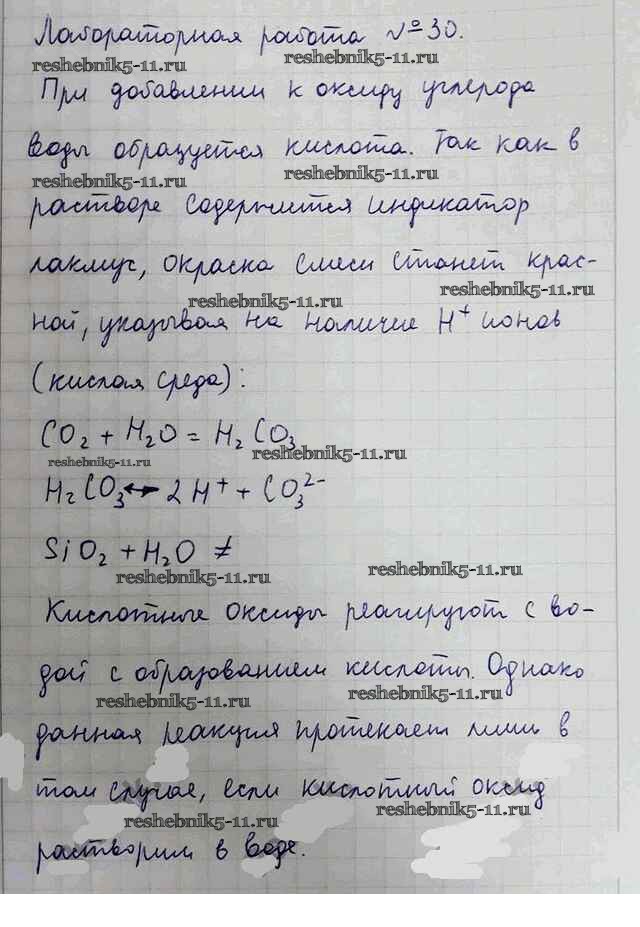 Лабораторная работа №30.
reshebnik5-11.ru reshebnik5-11.ru
При добавлении к оксиду углерода
воды образуется кислота. Так как в
reshebnik5-11.ru reshebnik5-11.ru
растворе содержится индикатор
лакмус, окраска смеси станет крас-
reshebnik5-11.ru reshebnik5-11.ru
ной, указывая на наличие H⁺ ионов
(кислая среда):
CO₂ + H₂O = H₂CO₃
reshebnik5-11.ru reshebnik5-11.ru
H₂CO₃ ↔ 2H⁺ + CO₃²⁻
SiO₂ + H₂O ≠
reshebnik5-11.ru reshebnik5-11.ru
Кислотные оксиды реагируют с во-
дой с образованием кислоты. Однако
reshebnik5-11.ru reshebnik5-11.ru
данная реакция протекает лишь в
том случае, если кислотный оксид
reshebnik5-11.ru reshebnik5-11.ru
растворим в воде.